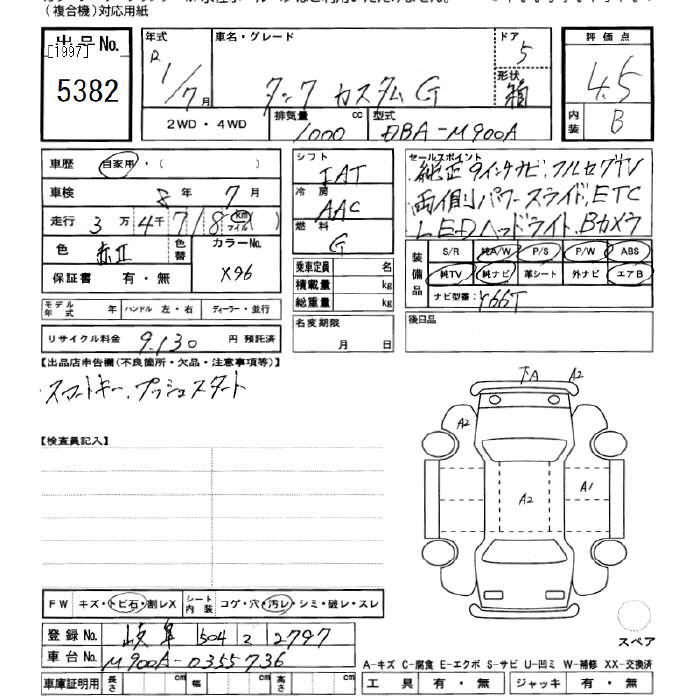 (複合機)対応用紙
出品No.
[1997]
5382
年式
R 1/7月
車名・グレード
タンク カスタムG
ドア
5
形状
箱
評価点
4.5
内装
B
2WD・4WD
排気量
1000 cc
型式
DBA-M900A
車歴
自家用・( )
車検
8年 7月
走行
3万4千718 km マイル
色
赤II
色替
カラーNo.
X96
保証書 有・無
シフト
IAT
冷房
AAC
燃料
G
乗車定員 名
積載量 kg
総重量 kg
セールスポイント
純正9インチナビ,フルセグTV
両側パワースライド,ETC
LEDヘッドライト,Bカメラ
装備品
S/R 純A/W P/S P/W ABS
純TV 純ナビ 革シート 外ナビ エアB
ナビ型番: Y66T
モデル年式 年 ハンドル 左・右 ディーラー・並行
リサイクル料金 9,130 円 預託済
名変期限
月 日
後日品
【出品店申告欄(不良箇所・欠品・注意事項等)】
スマートキー,プッシュスタート
【検査員記入】
下A A2
A2
A2
A1
スペア
FW キズ・トビ石・割レX シート内装 コゲ・穴・汚レ・シミ・破レ・スレ
登録No. 岐阜 504 2 2797
車台No. M900A-0355736
車庫証明用 長さ cm 幅 cm 高さ cm
A-キズ C-腐食 E-エクボ S-サビ U-凹ミ W-補修 XX-交換済
工具 有・無 ジャッキ 有・無